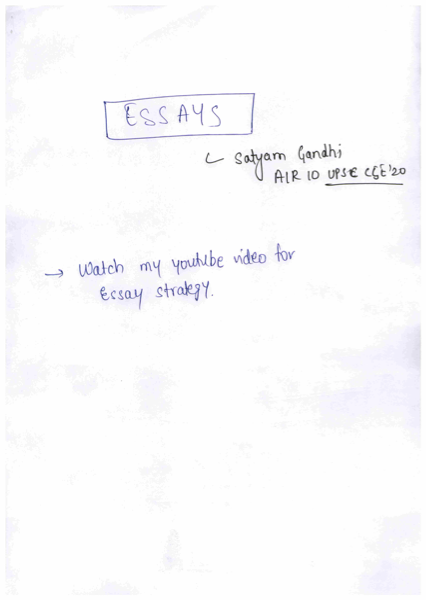 ESSAYS
Satyam Gandhi
AIR 10 UPSC CSE'20
→ Watch my youtube video for
Essay strategy.